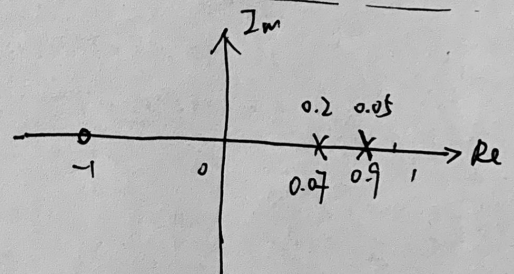 Im
0.2 0.05
Re
-1 0 0.07 0.9 1